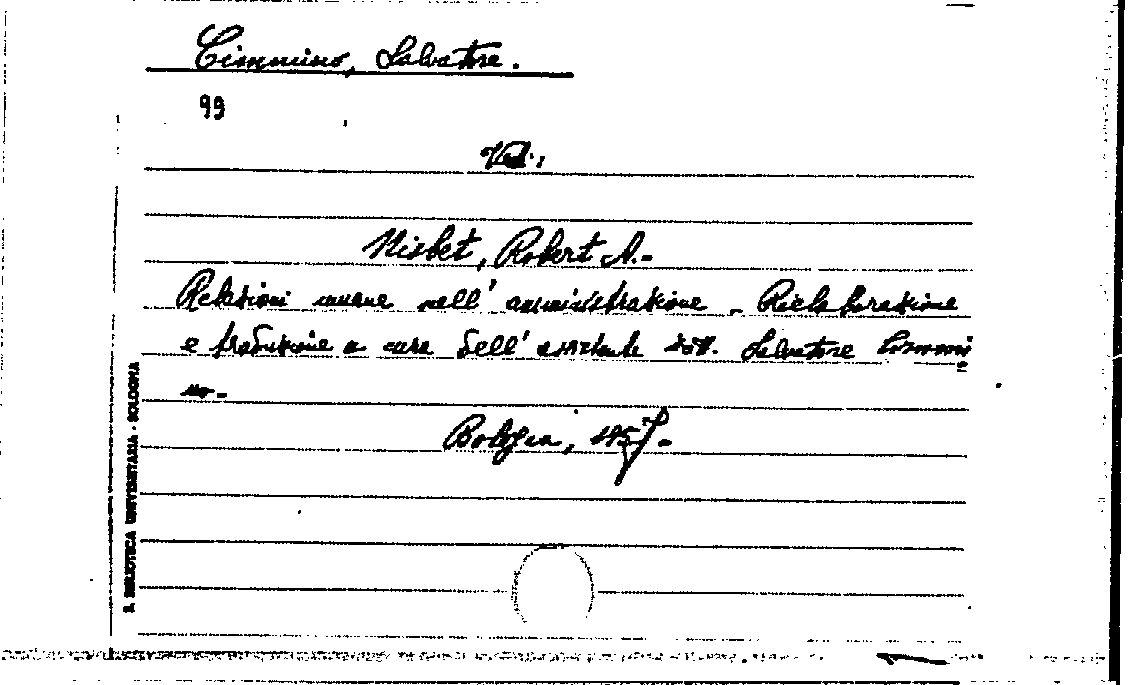 Cimmino, Salvatore.
99
Vedi:
Nisbet, Robert A.-
Relazioni umane nell'amministrazione - Rielaborazione
e traduzione a cura dell'assistente dott. Salvatore Cimmi
no.-
Bologna, 1957.-
R. BIBLIOTECA UNIVERSITARIA - BOLOGNA